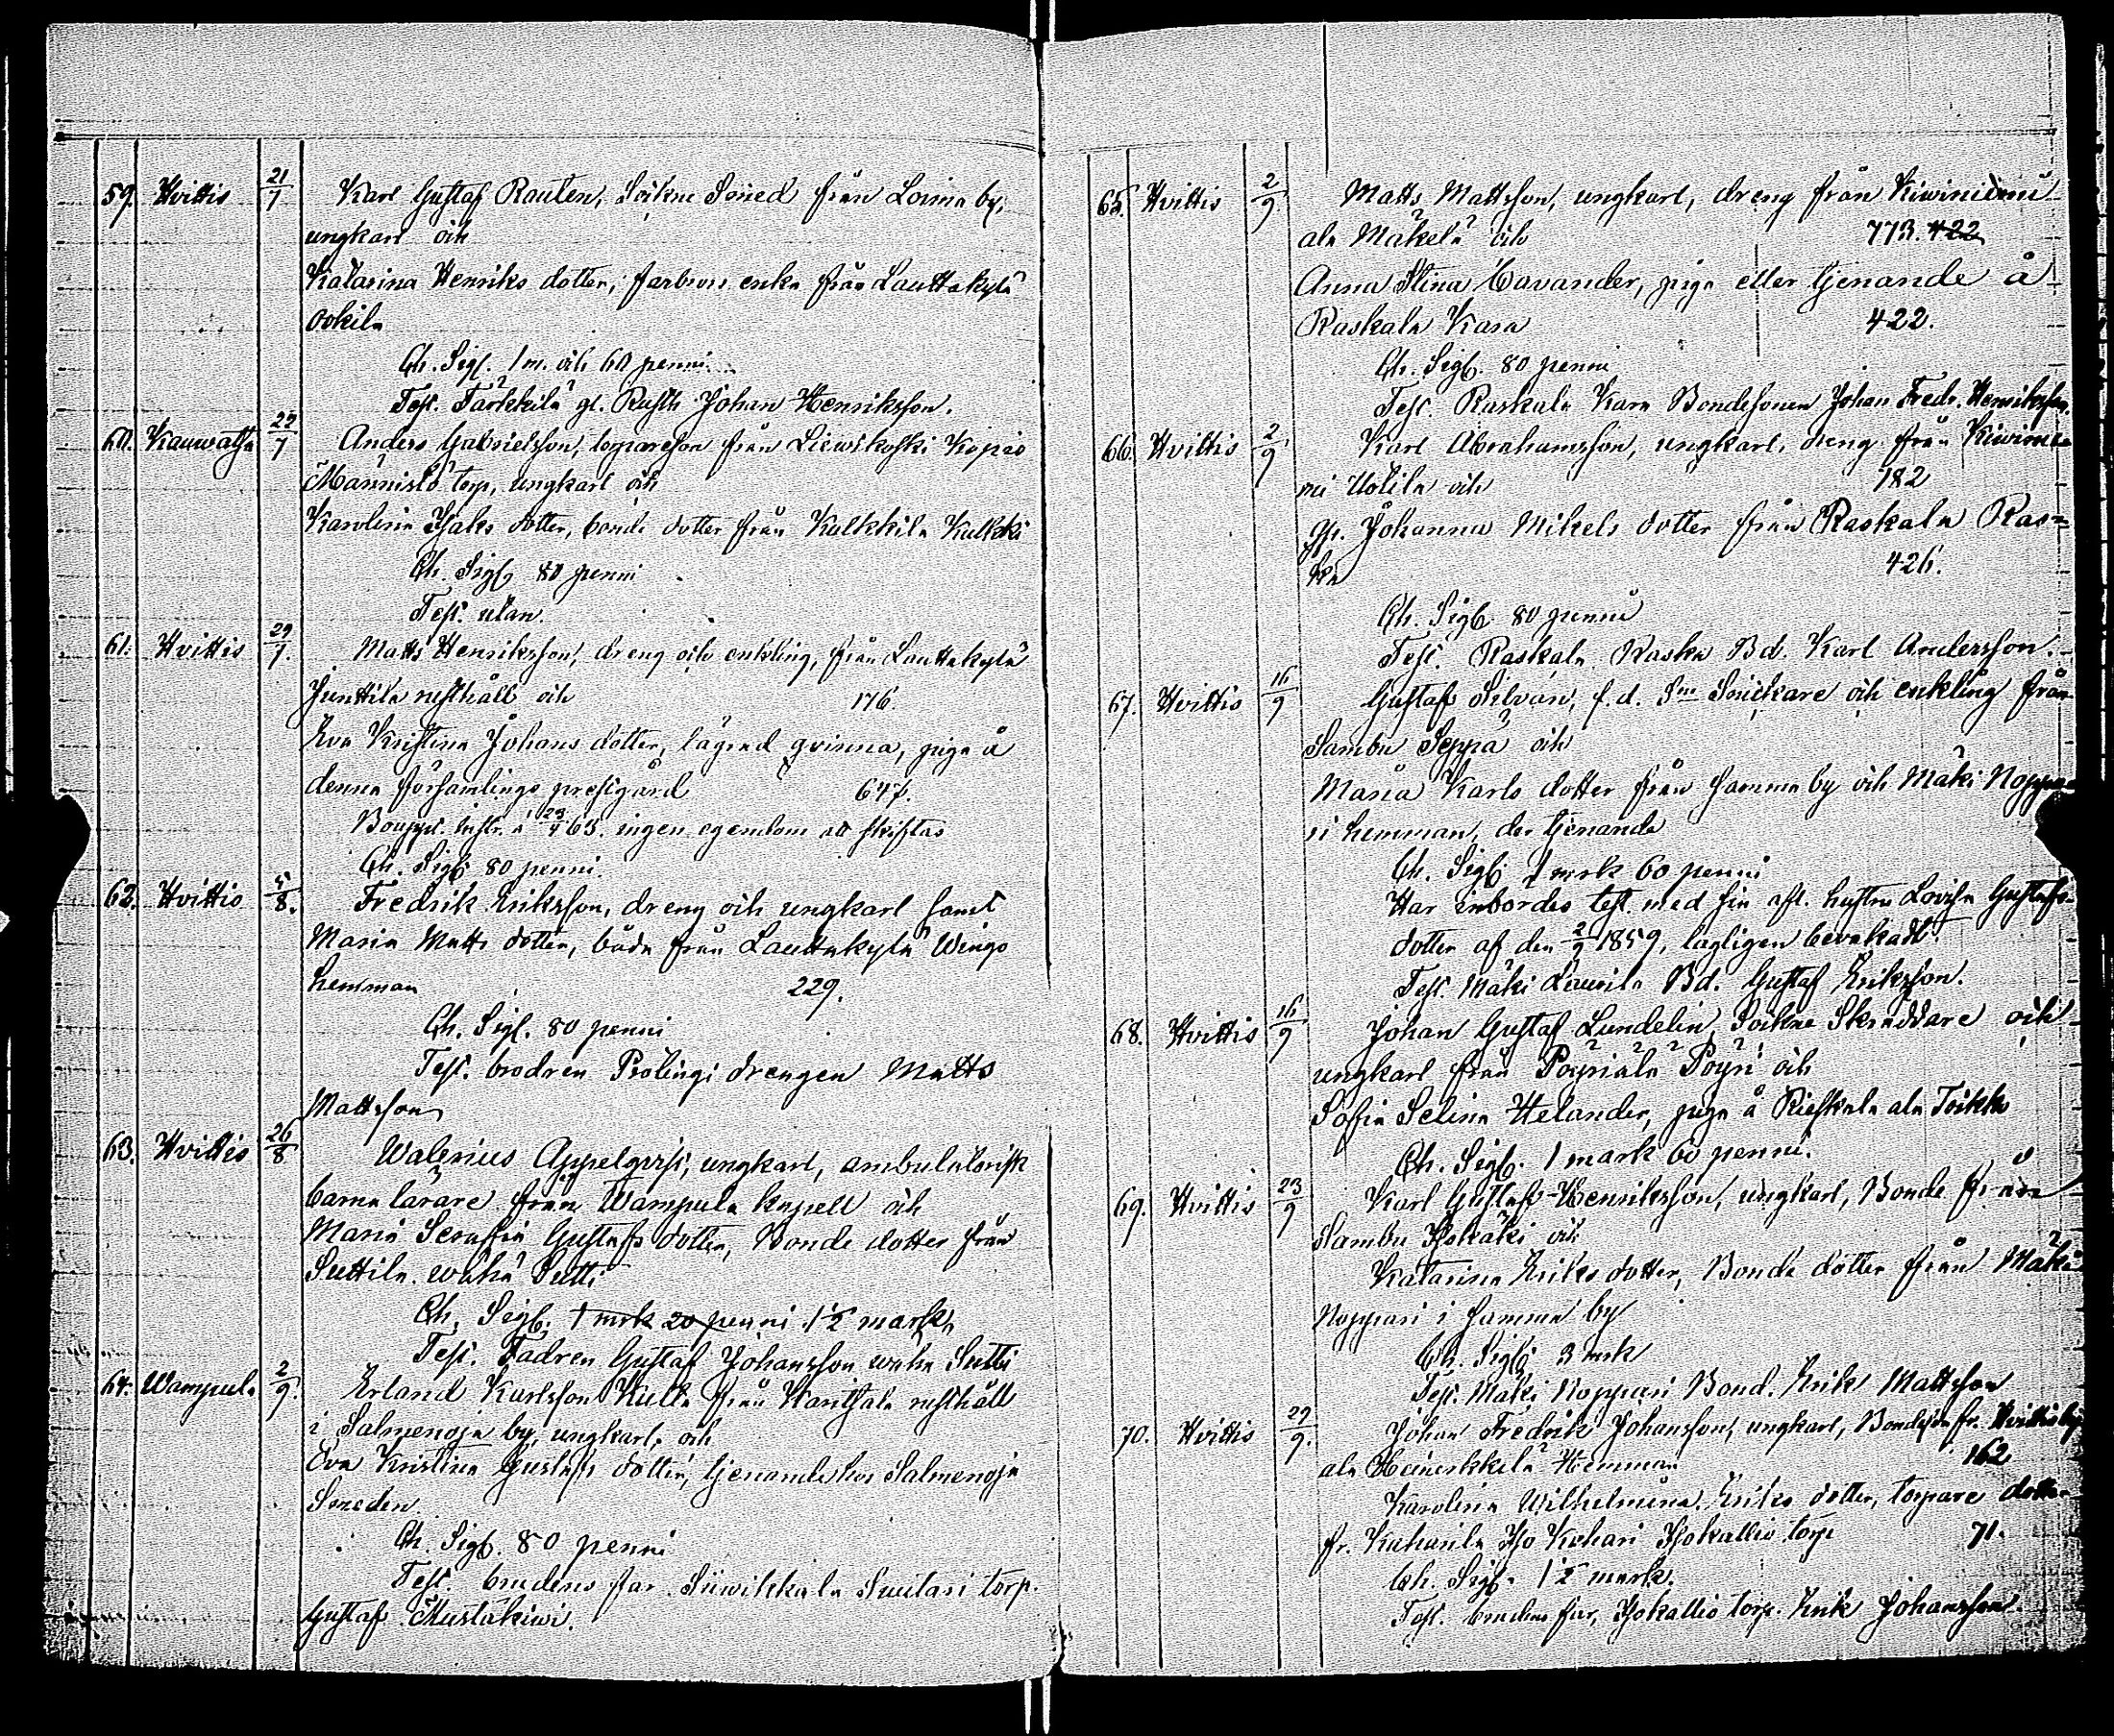 59. Hvittis 21/7 Karl Gustaf Rauten, Sockne Smed från Loima by,
ungkarl och
Katarina Henriks dotter, enka från Lauttakylä
Ookila
Ch. Sigf. 1 m. och 60 penni
Test. Tärkkilä gl. Rusth. Johan Henriksson.
60. Kauwatsa 22/7 Anders Gabrielsson, torpareson från Liewikoski Kopio
Männistö torp, ungkarl och
Karolina Isaks dotter, bonde dotter från Kulkkila Kulkki
Ch. Sigf 80 penni
Test. utan.
61. Hvittis 29/7. Matts Henriksson, dreng och enkling, från Lauttakylä
Junttila rusthåll och 176.
Eva Kristina Johans dotter, lägrad qvinna, piga å
denna församlings prestgård 647.
Bouppt. Instr. å 23/4 63. ingen egendom att skiftas
Ch. Sigf 80 penni.
62. Hvittis 5/8. Fredrik Eriksson, dreng och ungkarl samt
Maria Matts dotter, båda från Lauttakylä Wingo
hemman 229.
Ch. Sigf. 80 penni
Test. brodren drengen Matts
Mattsson
63. Hvittis 26/8 Walerius Appelqvist, ungkarl, ambulatorisk
barna lärare från Wampula kapell och
Maria Serafia Gustafs dotter, Bonde dotter från
Suttila wähä Sutti
Ch. Sigf. 1 mrk 20 penni 1 1/2 mark
Test. Fadren Gustaf Johansson wähä Sutti
64. Wampula 2/9. Erland Karlsson Kulla från Kanitsala rusthåll
i Salmenoja by, ungkarl, och
Eva Kristina Gustafs dotter, tjenande hos Salmenoja
Smeden
Ch. Sigf. 80 penni
Test. brudens far Siiwikkala Suutari torp.
Gustaf Mustakiwi.
65. Hvittis 2/9. Matts Mattsson, ungkarl, dreng från Kiwiniemi
ala Mäkelä och 773. 422
Anna Stina Cavander, piga eller tjenande å
Raskala Kara 422.
Ch. Sigf. 80 penni
Test. Raskala Kara Bondesonen Johan Fredr. Henriksson.
66. Hvittis 2/9 Karl Abrahamsson, ungkarl, dreng från Kiwinie
mi Uotila och 182
Johanna Mikels dotter från Raskala Ras=
ka 426.
Ch. Sigf. 80 penni
Test. Raskala Raska Bd. Karl Andersson.
67. Hvittis 16/9 Gustaf Silvan, f.d. Snickare och enkling från
Sambu Seppä och
Maria Karls dotter från samma by och Mäki Noppa-
ri hemman, der tjenande
Ch. Sigf 1 mrk 60 penni
Har inbördes test. med sin afl. hustru Lovisa Gustafs-
dotter af den 2/9 1859, lagligen bevakadt.
Test. Mäki Laurila Bd. Gustaf Eriksson.
68. Hvittis 16/9 Johan Gustaf Lundelin, Sockne Skräddare och
ungkarl från Pöyriälä Pöyri och
Sofia Selina Helander, piga å Rieskala ala Toikko
Ch. Sigf. 1 mark 60 penni.
69. Hvittis 23/9 Karl Gustaf Henriksson, ungkarl, Bonde från
Sambu och
Katarina Eriks dotter, Bonde dotter från Mäki
Noppari i samma by
Ch. Sigf 3 mrk
Test. Mäki Noppari Bond. Erik Mattsson
70. Hvittis 29/9. Johan Fredrik Johansson, ungkarl, Bondeson fr. Hvittisby
ala Heinerkkilä Hemman 162
Karolina Wilhelmina Eriks dotter, torpare dotter
fr. Kuharila Iso Kuhari Isokallio torp 71.
Ch. Sigf. 1 1/2 mark.
Test. brudens far, Isokallio torp. Erik Johansson